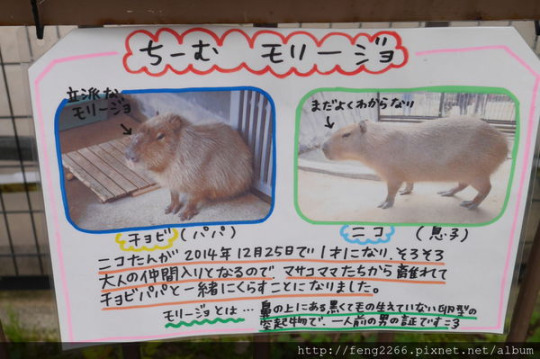 ちーむ モリージョ
立派な
モリージョ
まだよくわからない
チョビ(パパ)
ニコ (息子)
ニコたんが2014年12月25日で1才になり、そろそろ
大人の仲間入りとなるので マサコママたちから離れて
チョビパパと一緒にくらすことになりました。
モリージョとは… 鼻の上にある黒くて毛の生えていない卵型の
突起物で、一人前の男の証です
http://feng2266.pixnet.net/album